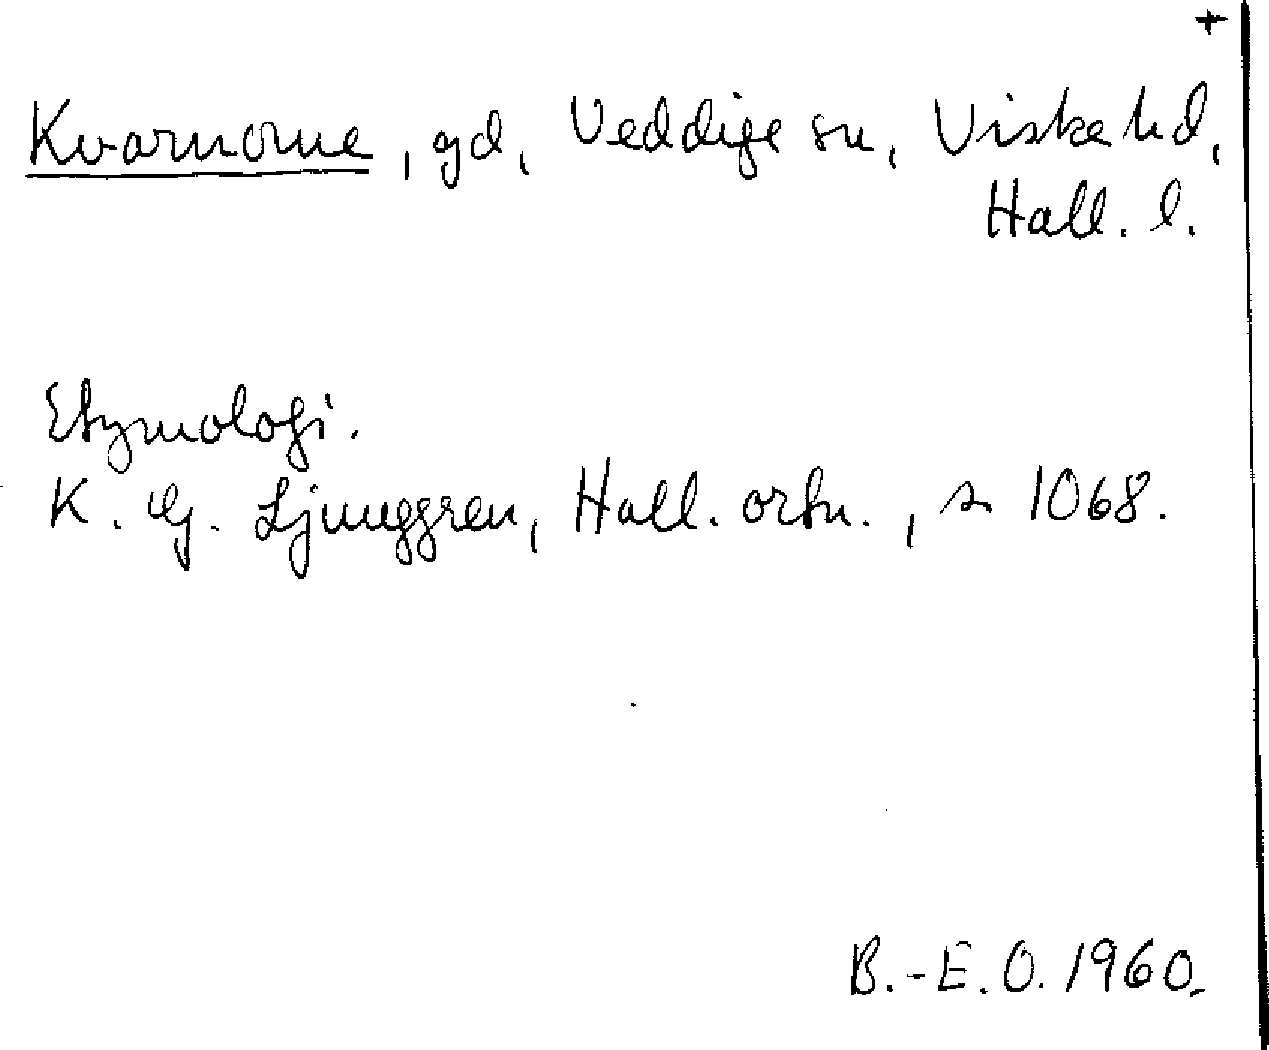 +
Kvarnorne, gd, Veddige sn, Viske hd,
Hall. l.
Etymologi.
K. G. Ljunggren, Hall. ortn., s 1068.
B.-E.O. 1960.